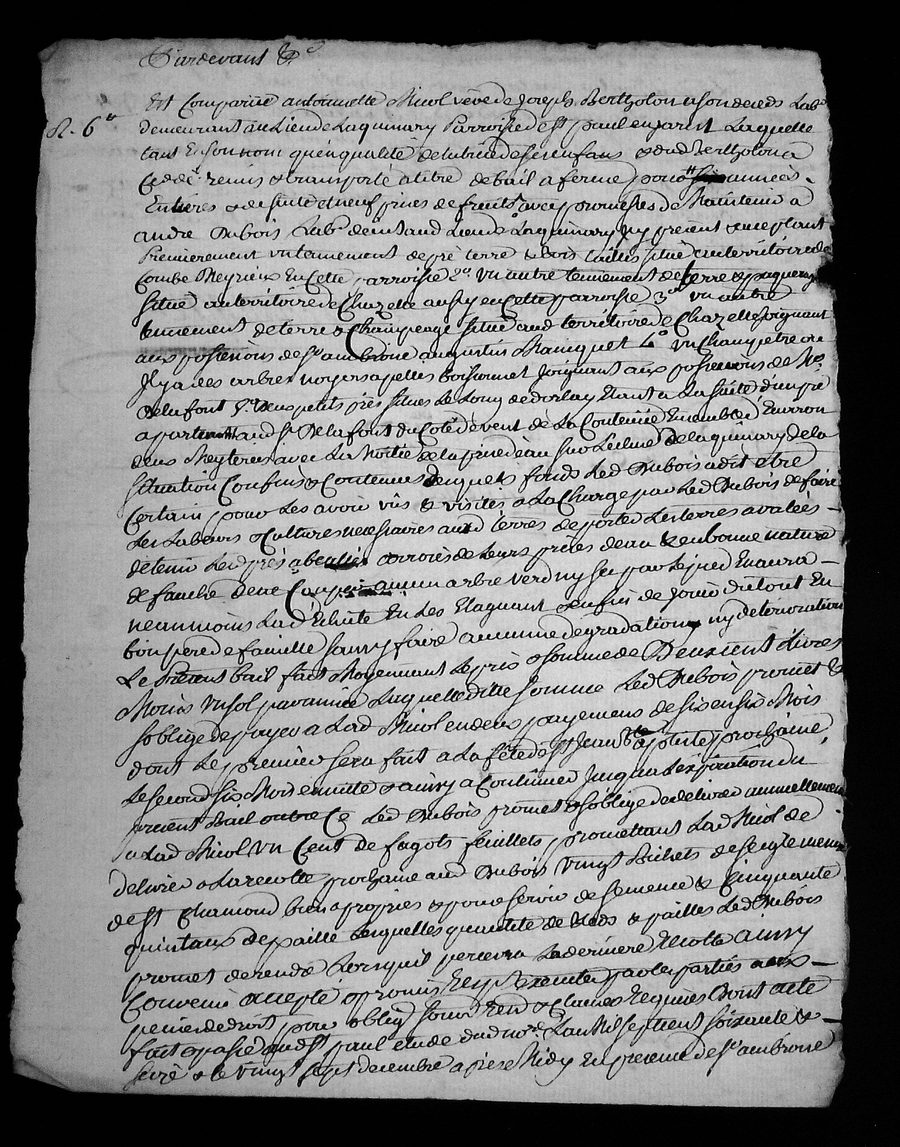 Pardevant &c
R. 6s
Est Comparüe antoinette Nicol veve de Joseph Bertholon a son deceds Labr
demeurant au Lieu de Laquinary Parroisse de st paul en Jarest Laquelle
tant En son nom qu'en qualité de tutrice de ses enfans & dud Bertholon a
Ceddé remis & transporté a titre de bail a ferme pour six années
Entieres & de suite et neuf prises de fruits avec promesses de Maintenir a
andre Dubois Labr demt aud Lieu de Laquinary Icy present & acceptant
Premierement un tennement de pré terre & bois taillis situé au territoire de
Combe Reyrieux En Cette parroisse 2o un autre tennement de terre & paquerage
situé au territoire de Chazelle aussy en Cette parroisse 3o un autre
tennement de terre & Champeage situé aud territoire de Chazelle Joignant
aux possessions de Sr ambroise augustin Mainquet 4o un Champ etre ou
Il y a des arbres noyers apellés boissonnet Joignant aux possessions de Mr
Delafont 5o deux petits prés situés Le Long de dorlay Etant a La suite d'un pré
apartenant aud Sr Delafont du Coté de vent de La Contenüe Ensemble d'Environ
deux Meyterées avec La Moitié de La prise d'eau sur L'ecluse de Laquinary de la
situation Confins & Contenues desquels fonds Led Dubois a dit etre
Certain pour Les avoir vüs & visités a La Charge par Led Dubois de faire
Les Labours & Cultures necessaires aux d terres de porter Les terres avalées
detenir Led prés arrosés de Leurs prises d'eau & en bonne nature
de fauche de ne Couper aucun arbre verd ny sec par Le pied En aura
neanmoins La d'Echute En Les Elaguant & enfin de Jouir du tout En
bon pere de famille sans y faire aucune degradation ny deterioration
Le Present bail fait Moyennant Le prix & somme de Deux Cent Livres
Moins un sol par année Laquelle ditte somme Led Dubois promet &
s'oblige de payer a Lad Nicol en deux payemens de six en six Mois
dont Le premier sera fait a La fête de st Jean Bte prochaine
Le second six Mois ensuite & ainsy a Continuer Jusqu'a L'expiration du
present bail outre Ce Led Dubois promet & s'oblige de delivrer annuellement
a Lad Nicol un Cent de fagots feuillets, promettant Lad Nicol de
delivrer a La recolte prochaine aud Dubois vingt bichets de seigle mesure
de st Chamond bien apropriés & pour servir de semence & Cinquante
quintaux de paille Lesquelles quantité de bleds & pailles Led Dubois
promet de rendre Lorsqu'il percevra La derniere Recolte ainsy
Convenu accepté & promis Respectivement par Les parties aux
peines de droit pour oblig soum Ren & Clauses Requises Dont acte
fait & passé aud st paul etude dud nore L'an Mil sept cent soixante &
seize & Le vingt sept decembre apres Midy En presence de Sr ambroise